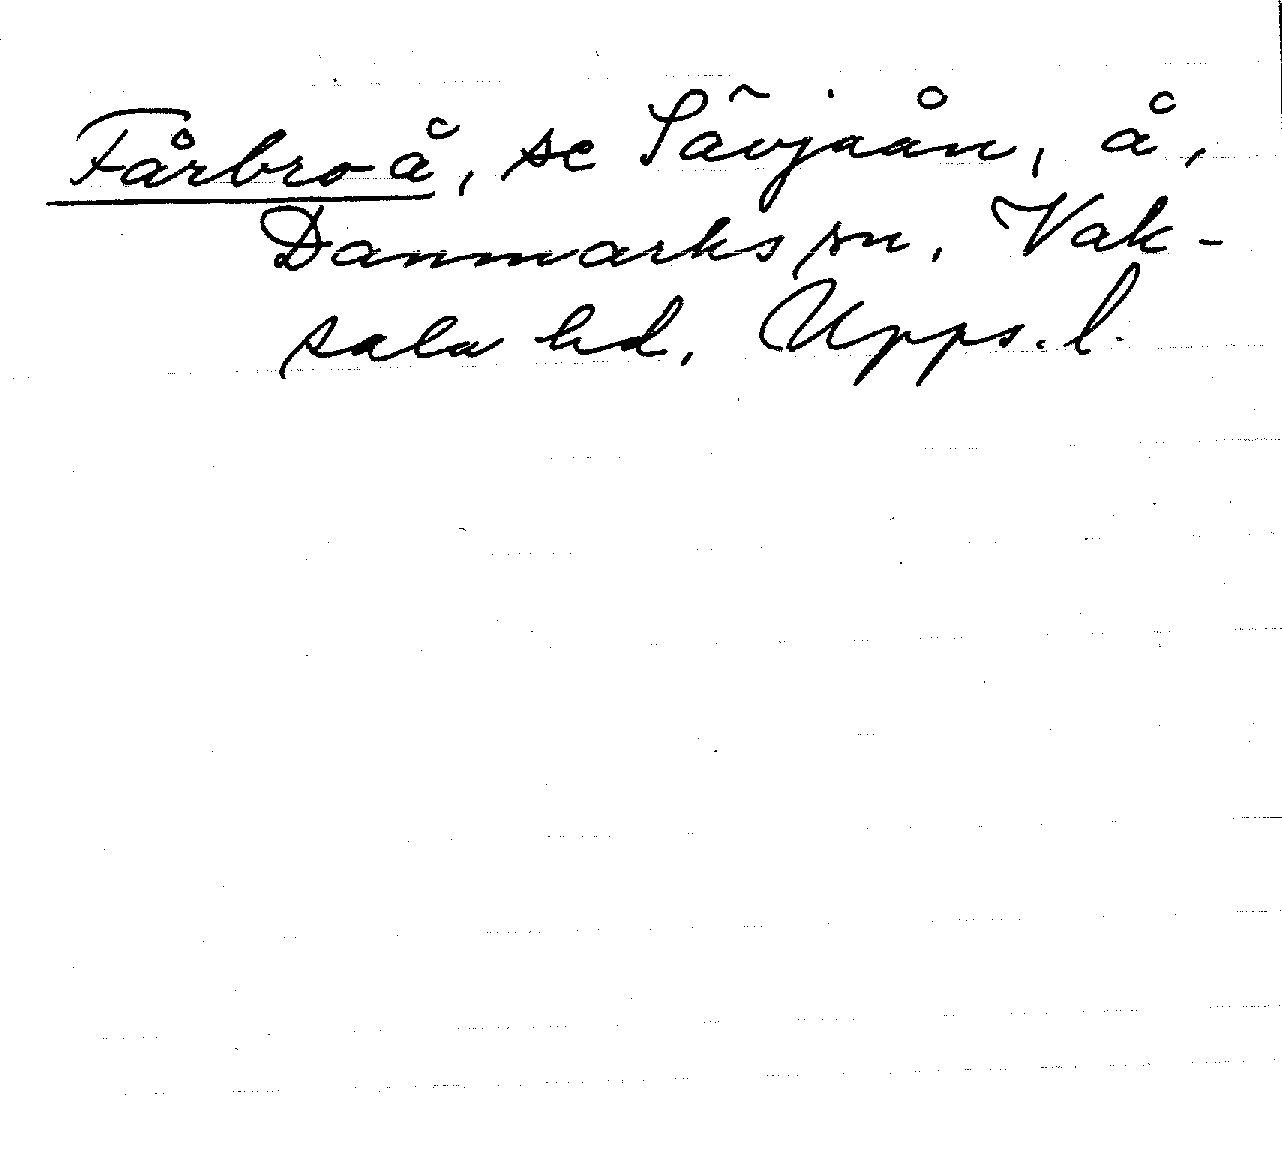 Fårbro-å, se Sävjaån, å,
Danmarks sn, Vak-
sala hd, Upps. l.